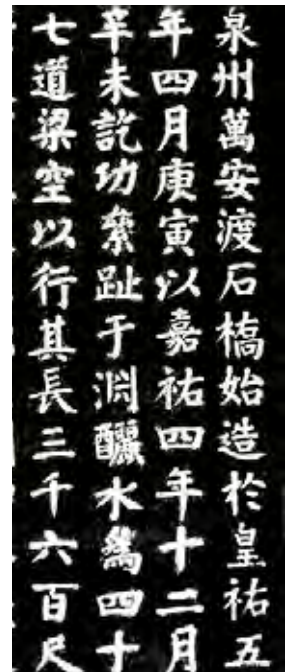 泉州萬安渡石橋始造於皇祐五
年四月庚寅以嘉祐四年十二月
辛未訖功絫趾于淵釃水為四十
七道梁空以行其長三千六百尺